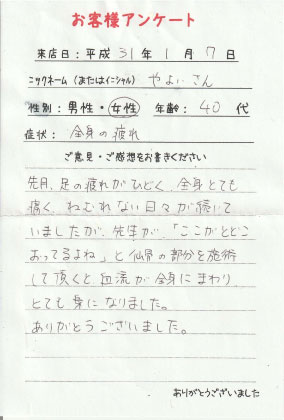 お客様アンケート
来店日：平成 31 年 1 月 7 日
ニックネーム（またはイニシャル） やよい さん
性別：男性・女性 年齢：40 代
症状：全身の疲れ
ご意見・ご感想をお書きください
先月、足の疲れがひどく、全身とても
痛く、ねむれない日々が続いて
いましたが、先生が、「ここがとどこ
おってるよね」と仙骨の部分を施術
して頂くと血流が全身にまわり、
とても身になりました。
ありがとうございました。
ありがとうございました